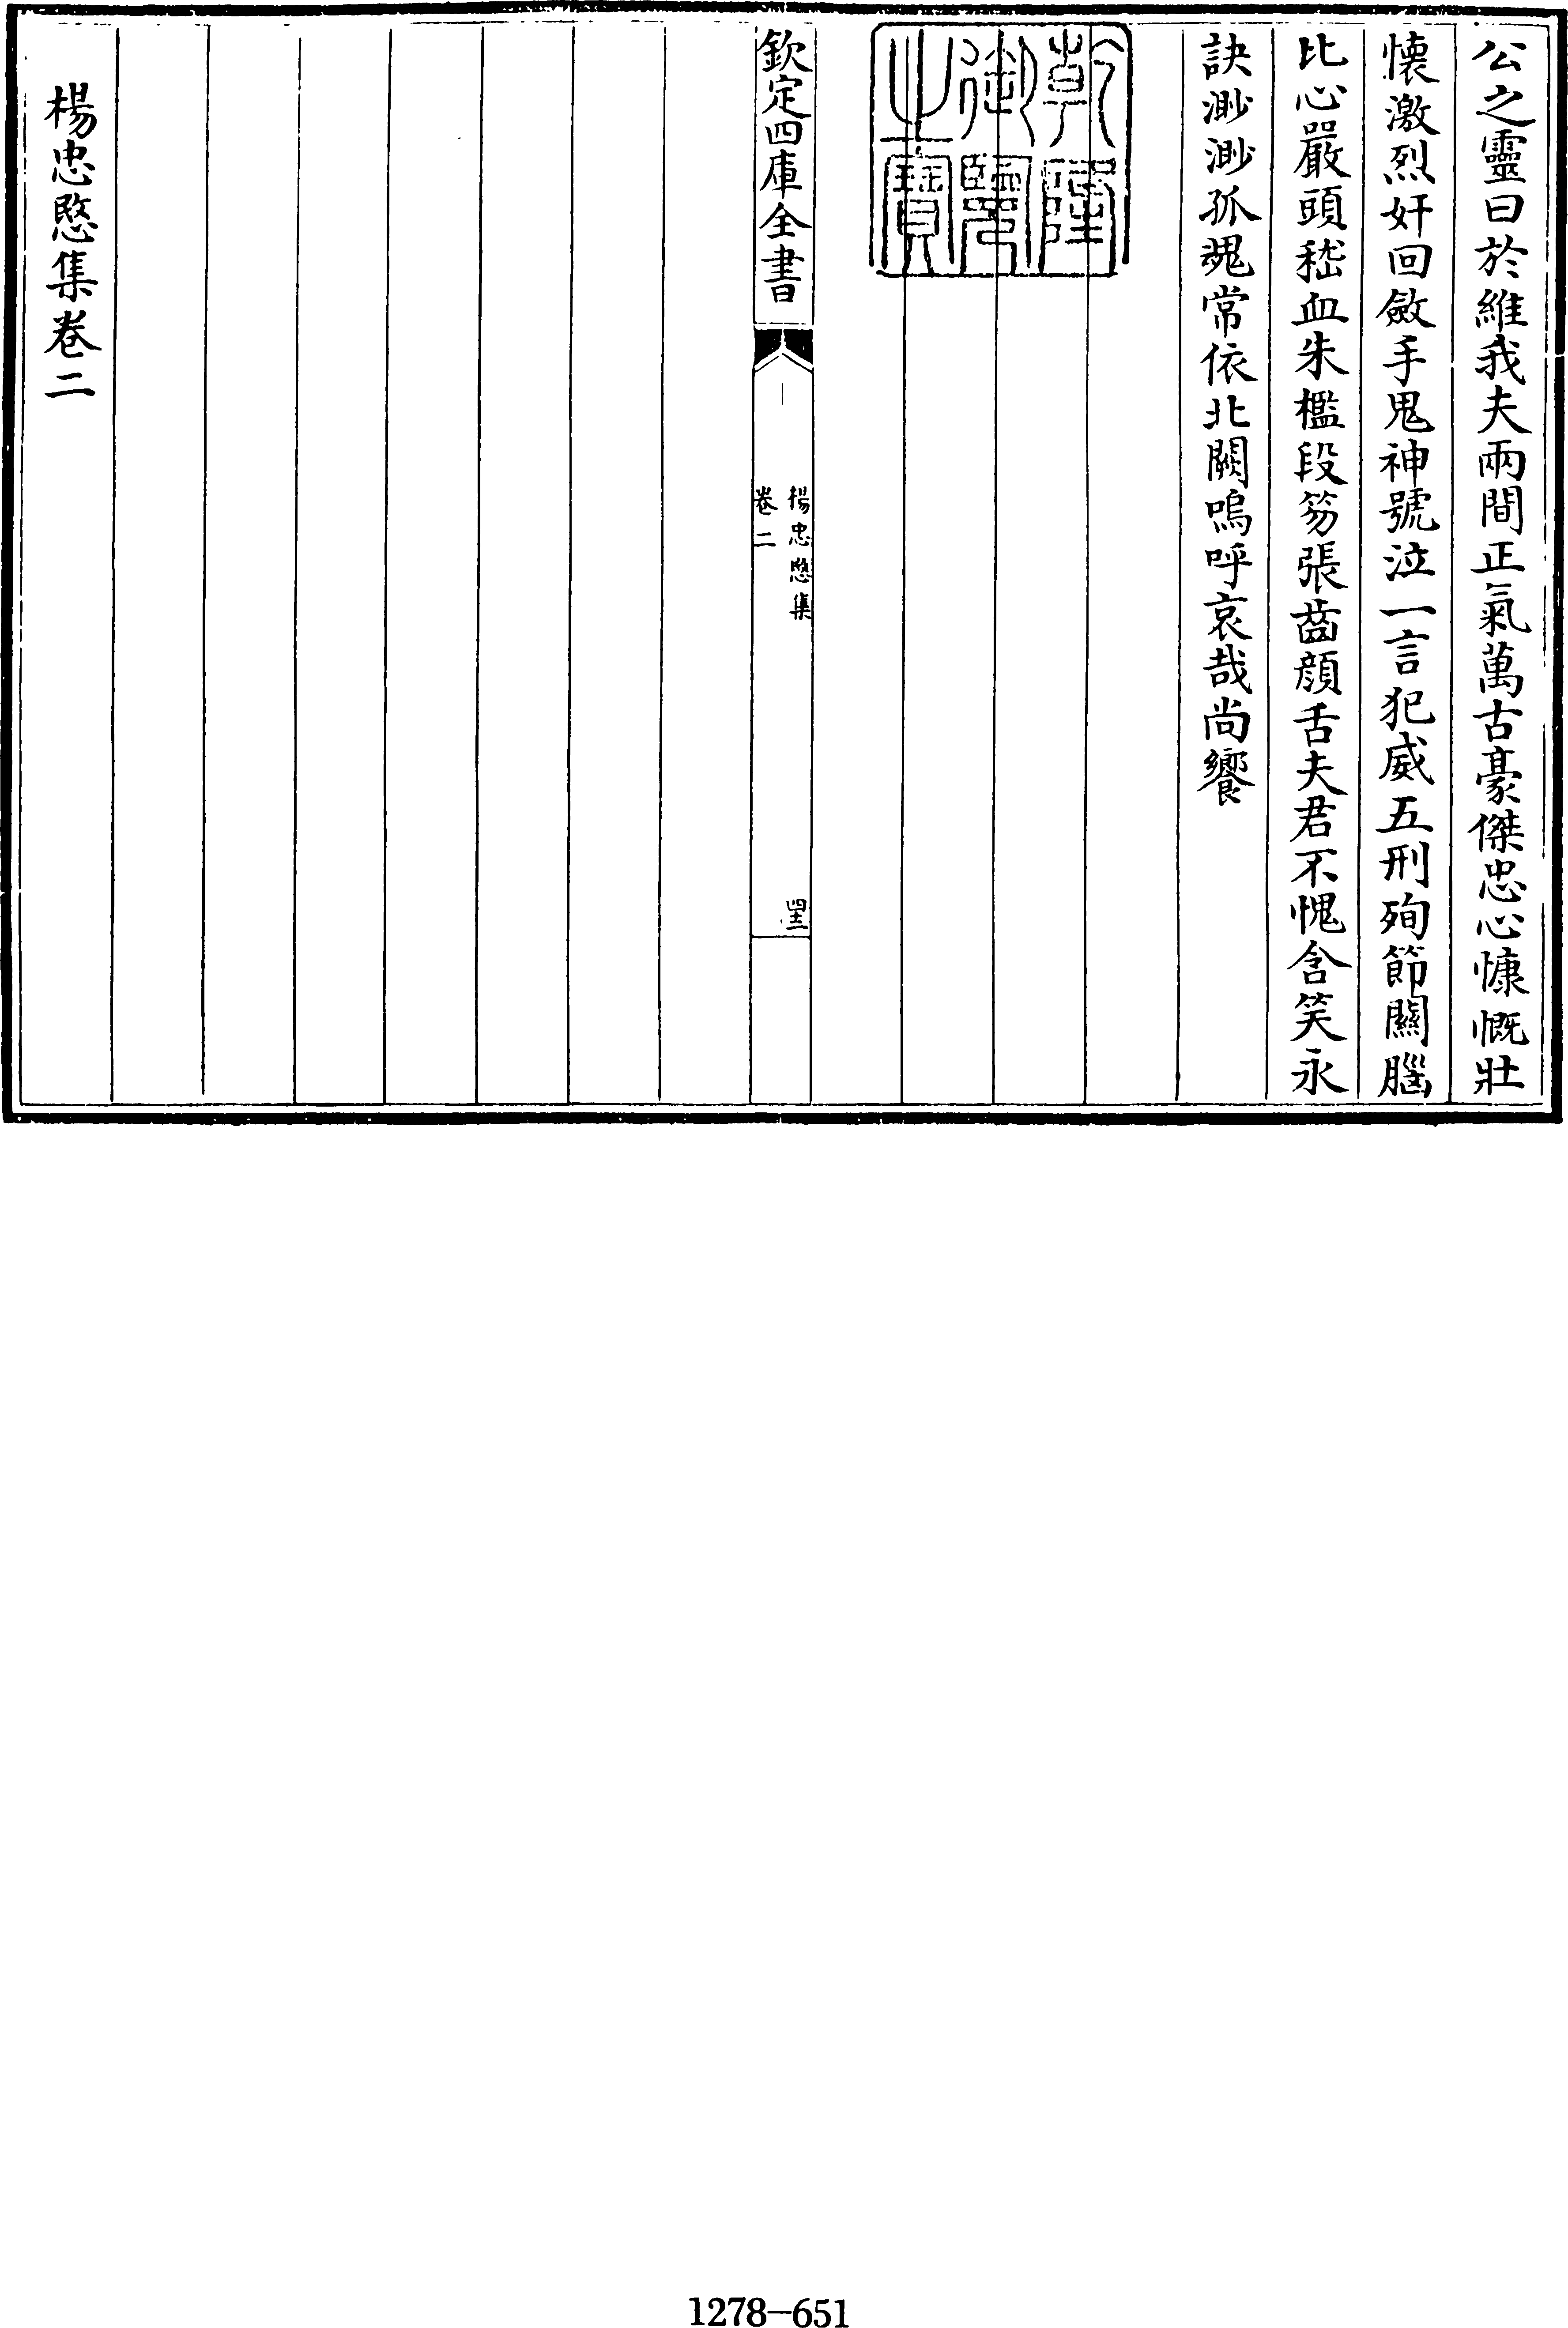 公之靈曰於維我夫兩間正氣萬古豪傑忠心慷慨壯
懷激烈奸回斂手鬼神號泣一言犯威五刑殉節關腦
比心嚴頭嵇血朱檻段笏張齒顔舌夫君不愧含笑永
訣渺渺孤魂常依北闕嗚呼哀哉尚饗
乾隆
御覽
之寶
欽定四庫全書
楊忠愍集
卷二
楊忠愍集卷二
1278-651